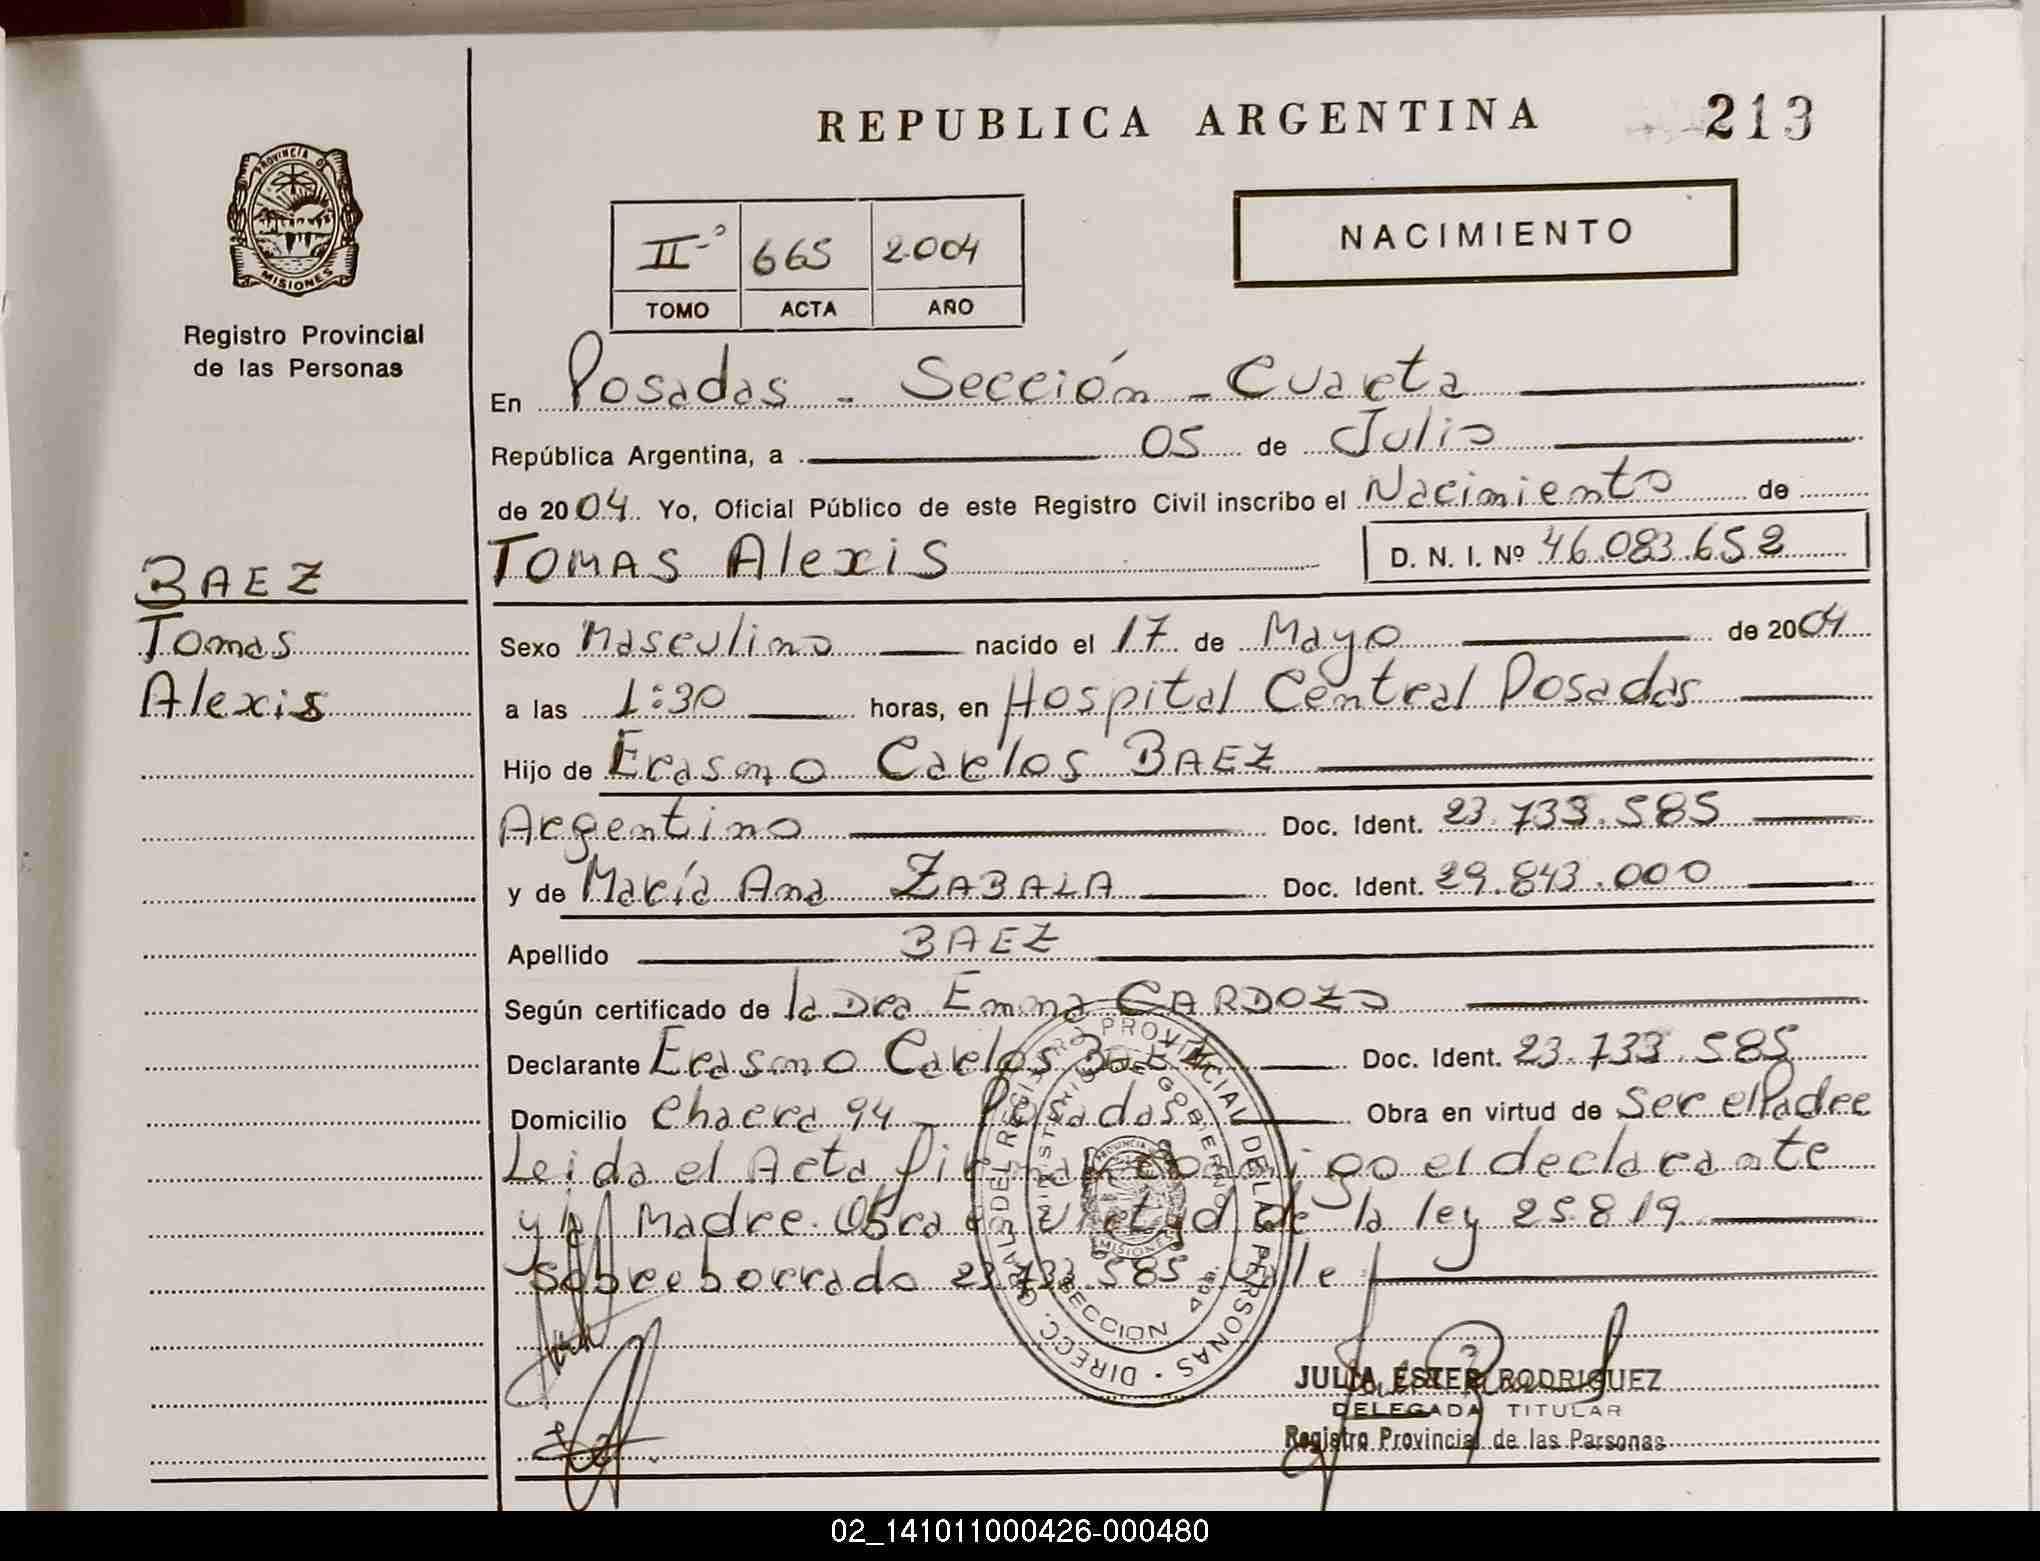 REPUBLICA ARGENTINA 213
PROVINCIA DE MISIONES
Registro Provincial
de las Personas
II-° 665 2.004
TOMO ACTA AÑO
NACIMIENTO
En Posadas - Sección - Cuarta
República Argentina, a 05 de Julio
de 2004. Yo, Oficial Público de este Registro Civil inscribo el Nacimiento de
TOMAS Alexis D. N. I. Nº 46.083.652
BAEZ
Tomas
Alexis
Sexo Masculino nacido el 17 de Mayo de 2004
a las 1:30 horas, en Hospital Central Posadas
Hijo de Erasmo Carlos BAEZ
Argentino Doc. Ident. 23.733.585
y de María Ana ZABALA Doc. Ident. 29.843.000
Apellido BAEZ
Según certificado de la Dra Emma CARDOZO
Declarante Erasmo Carlos BAEZ Doc. Ident. 23.733.585
Domicilio Chacra 94 - Posadas Obra en virtud de Ser el Padre
Leida el Acta firman conmigo el declarante
y la Madre. Obra en virtud de la ley 25.819
Sobreborrado 23.733.585 Valle
DIREC. GRAL. DEL REGISTRO PROVINCIAL DE LAS PERSONAS
MINISTERIO DE GOBIERNO
PROVINCIA DE MISIONES
SECCION 4ta.
JULIA ESTER RODRIGUEZ
DELEGADA TITULAR
Registro Provincial de las Personas
02_141011000426-000480